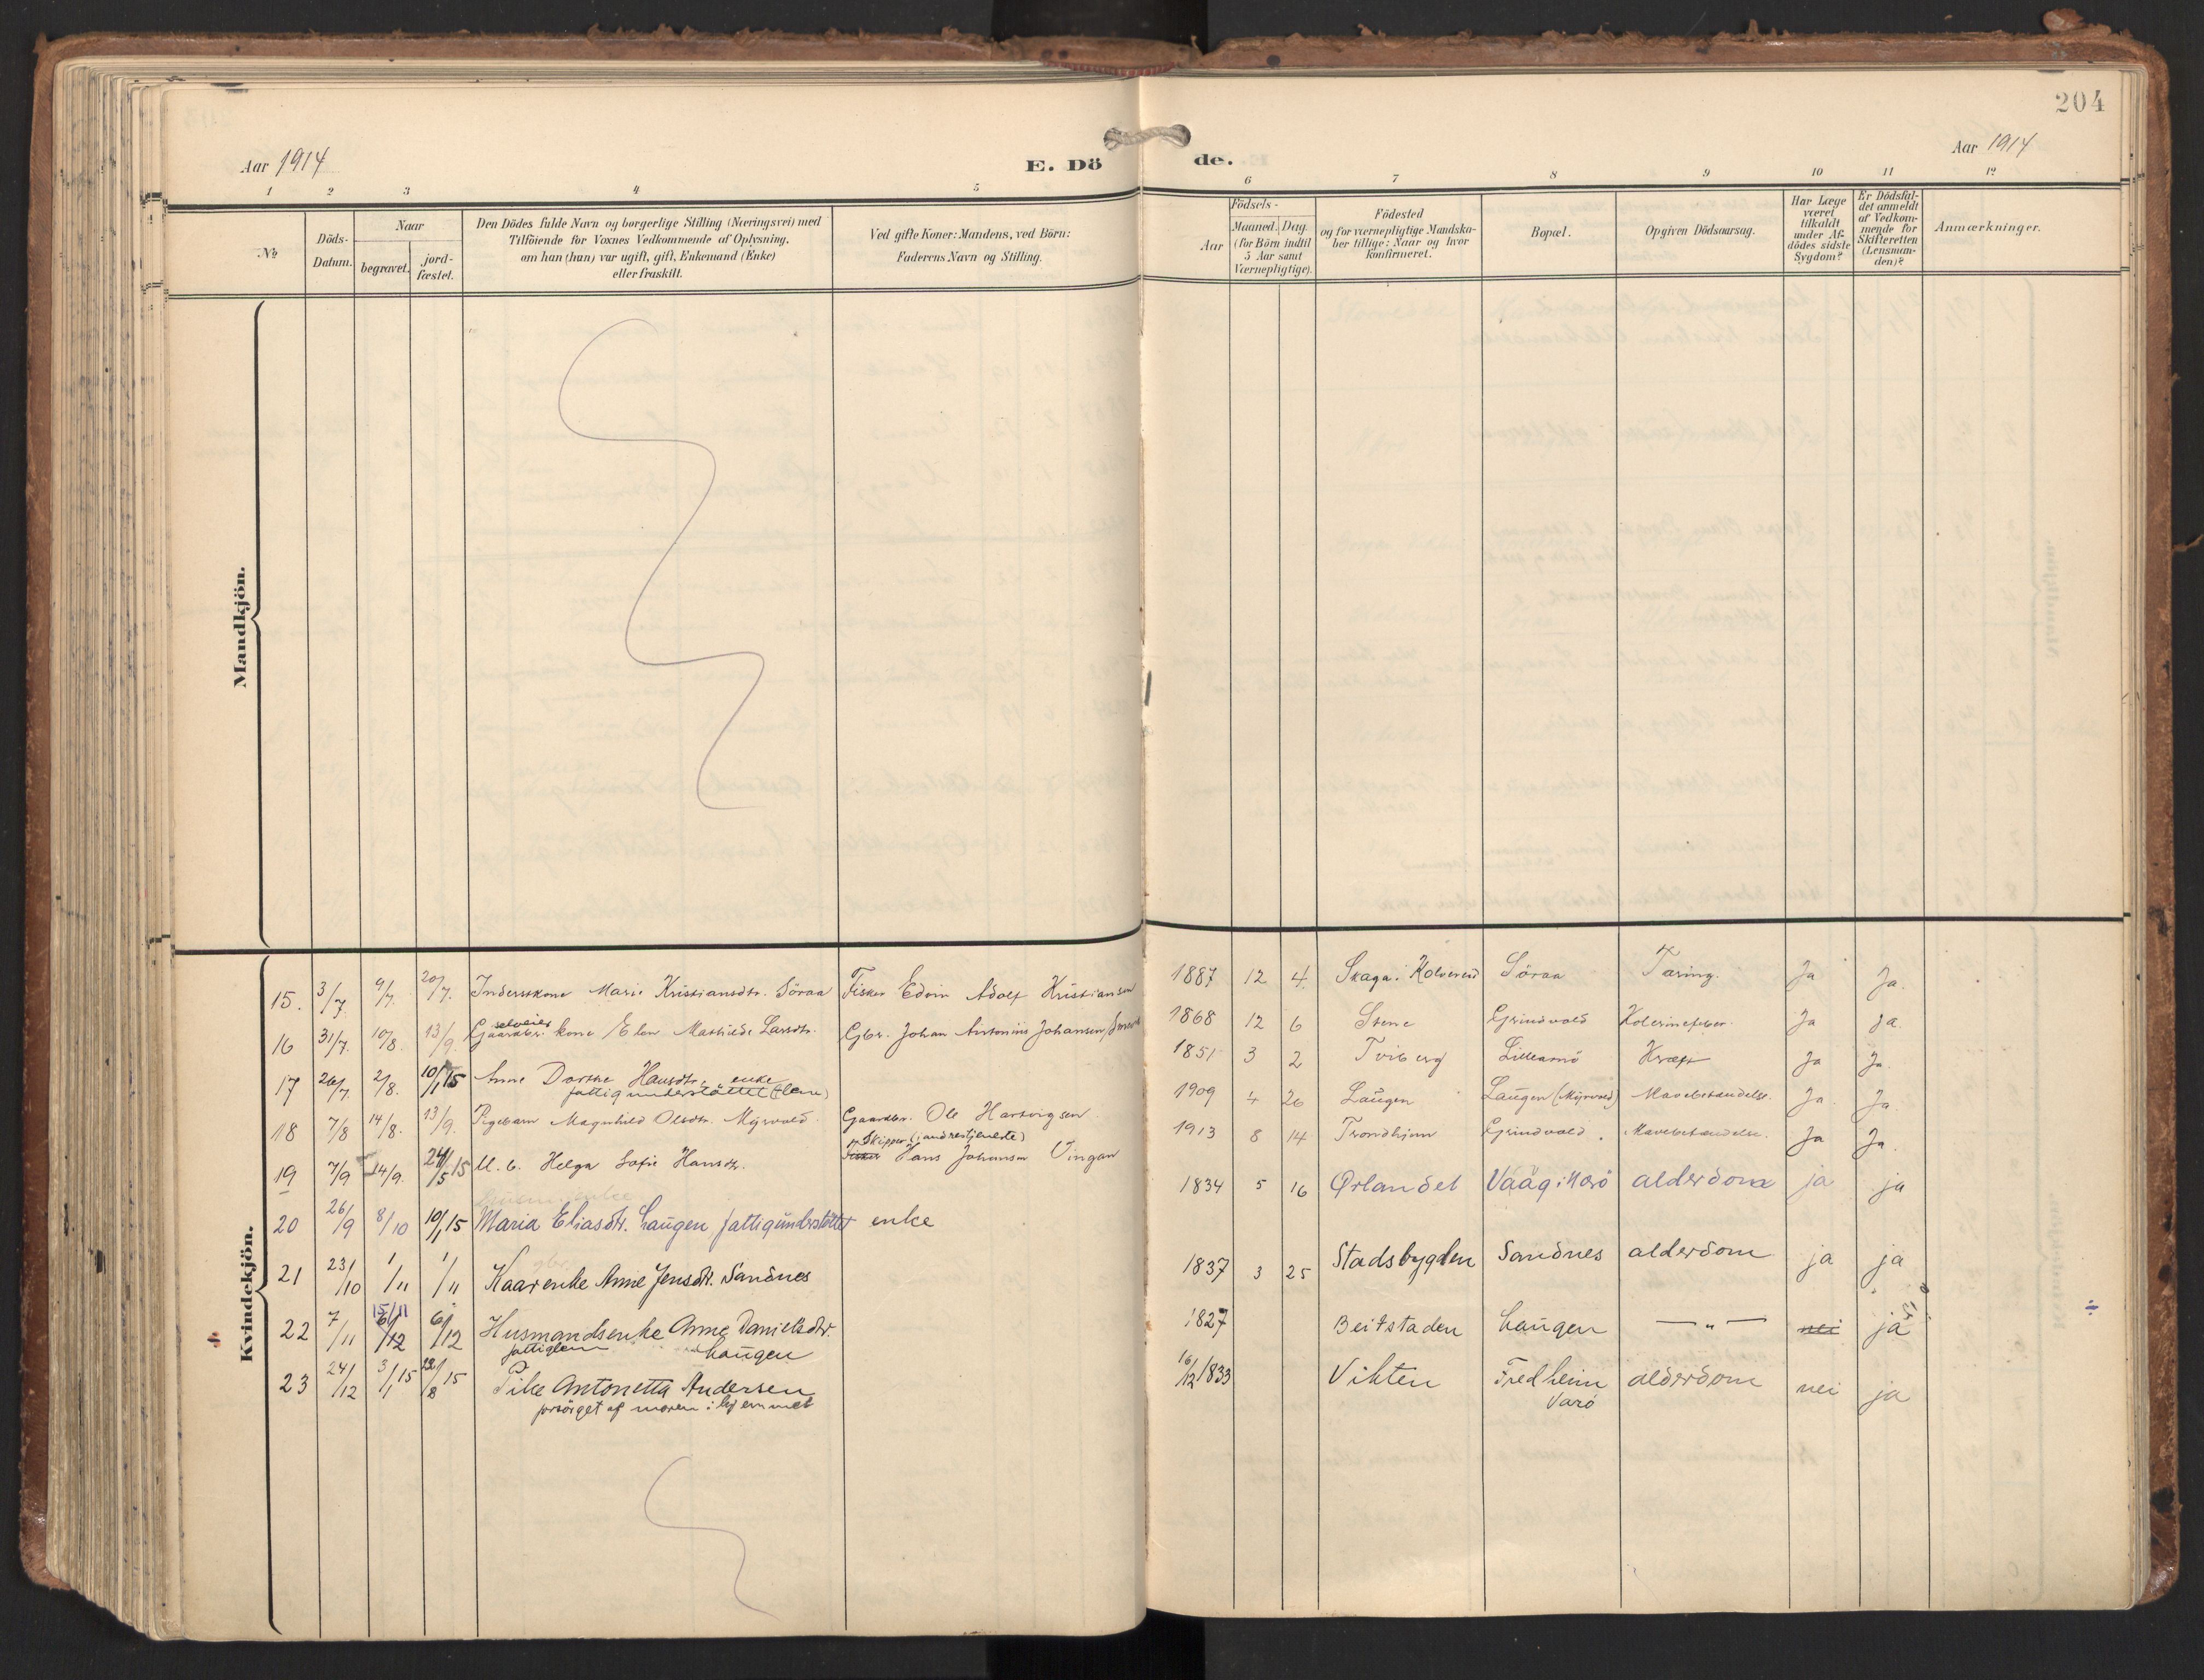 204
Aar 1914
E. Dö
de.
Aar 1914
1 2 3 4 5 6 7 8 9 10 11 12
No
Döds-Datum.
Naar
begravet.
jord-fæstet.
Den Dödes fulde Navn og borgerlige Stilling (Næringsvei) med
Tilföiende for Voxnes Vedkommende af Oplysning,
om han (hun) var ugift, gift, Enkemand (Enke)
eller fraskilt.
Ved gifte Koner: Mandens, ved Börn:
Faderens Navn og Stilling.
Födsels-
Aar
Maaned. Dag
(for Börn indtil
5 Aar samt
Værnepligtige).
Födested
og for værnepligtige Mandska-
ber tillige: Naar og hvor
konfirmeret.
Bopæl.
Opgiven Dödsaarsag.
Har Læge
været
tilkaldt
under Af-
dödes sidste
Sygdom?
Er Dödsfal-
det anmeldt
af Vedkom-
mende for
Skifteretten
(Lensman-
den)?
Anmærkninger.
Mandkjön.
Kvindekjön.
15. 3/7 9/7. 20/7. Inderstkone Marie Kristiansdtr. Söraa Fisker Edvin Adolf Kristiansen 1887 12 4 Skaga i Kolvereid Söraa Tæring. Ja Ja.
selveier
16 31/7. 10/8. 13/9. Gaardbr. kone Elen Mathilde Larsdtr. Gbr. Johan Antonius Johansen 1868 12 6 Stene Grindvold Ja Ja.
17 26/7 2/8. 10/1 15 Anne Dorthe Hansdtr. enke 1851 3 2 Tviberg Lillearnö Kræft Ja Ja.
fattigunderstöttet
18 7/8 14/8. 13/9. Pigebarn Magnhild Olsdtr. Myrvold Gaardbr. Ole Hartvigsen 1909 4 26 Laugen Laugen (Myrvold) Ja. Ja
Skipper (i andres tjeneste)
19 7/9 14/9. 24/5 15 U. b. Helga Sofie Hansdtr. Fisker Hans Johansen Vingan 1913 8 14 Trondhjem Grindvold. Ja Ja.
20 26/9 8/10 10/1 15 Maria Eliasdtr. Laugen fattigunderstöttet enke 1834 5 16 Ørlandet Vaag i Nærö alderdom ja ja
21 23/10 1/11 1/11 Kaarenke Anne Jensdtr. Sandnes 1837 3 25 Stadsbygden Sandnes alderdom ja ja
15/11
22 7/11 6/12 6/12 Husmandsenke Anne Danielsdtr. 1827 Beitstaden Laugen — „ — nei ja
fattiglem Laugen
23 24/12 3/1 15 /8 15 Pike Antonetta Andersen 16/12 1833 Vikten Fredheim alderdom nei ja
forsörget af moren i hjemmet Varö